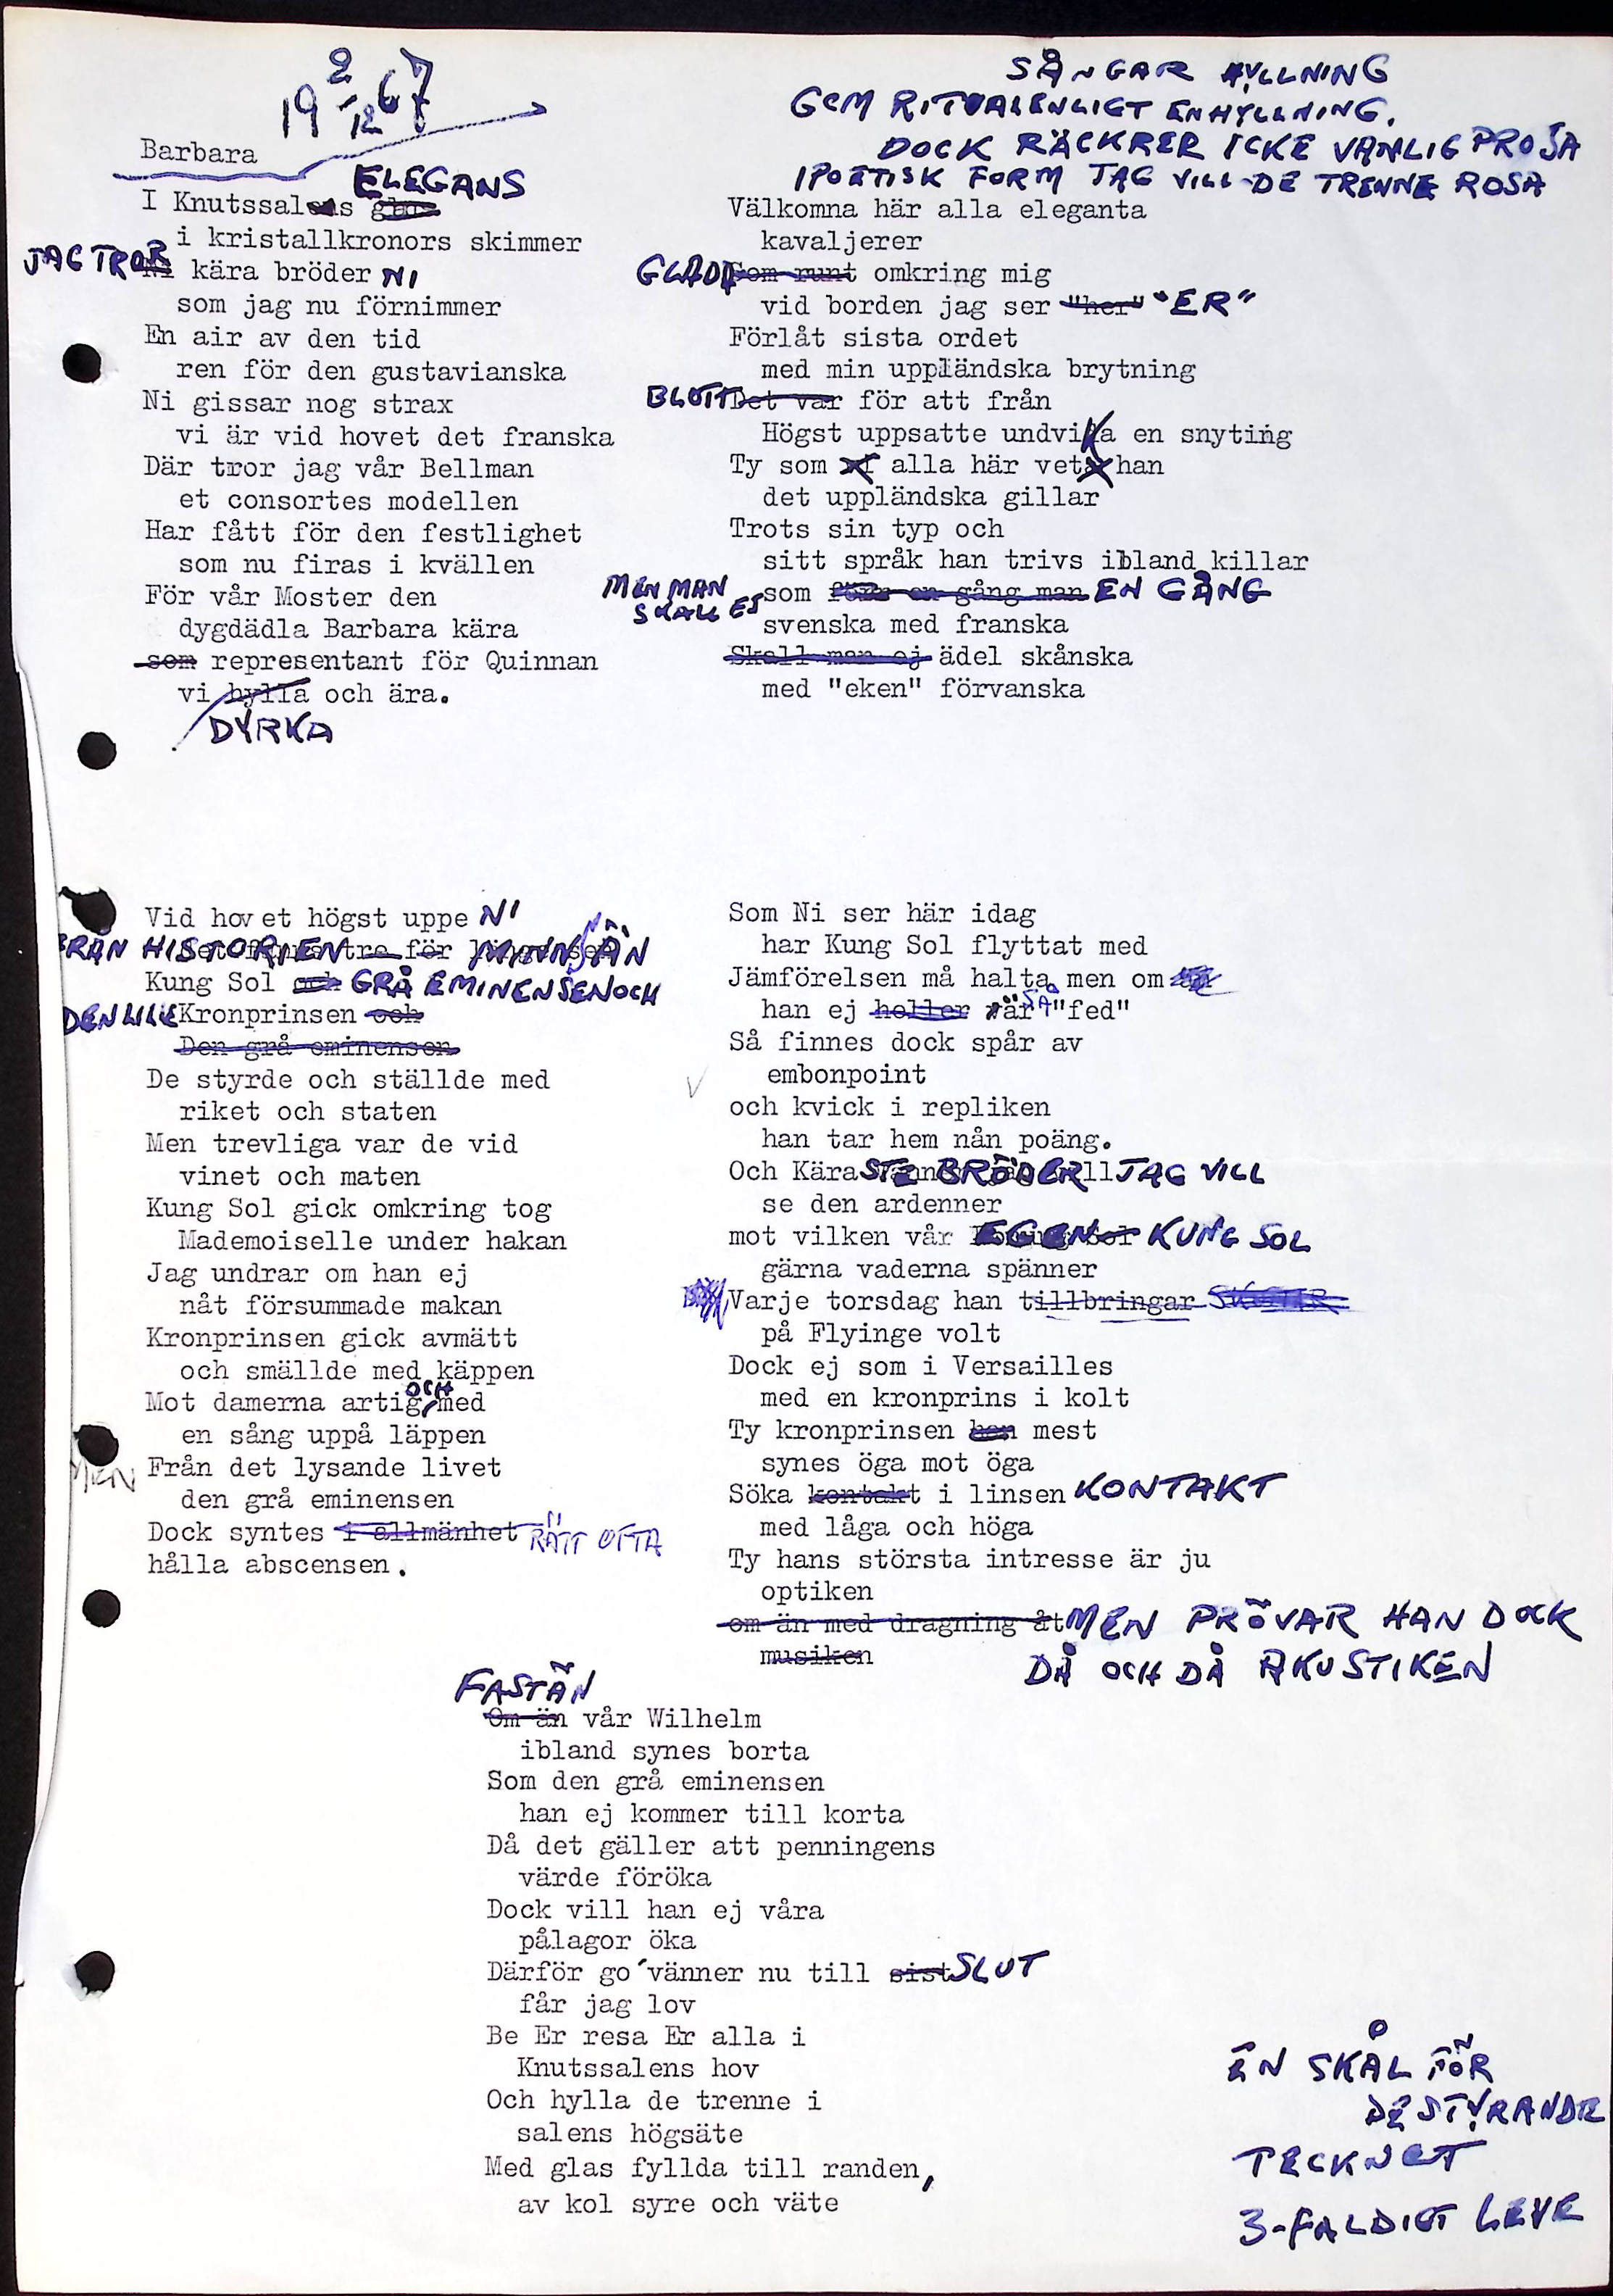 19 2/12 67
Barbara
ELEGANS
I Knutssalens glans
i kristallkronors skimmer
JAG TROR Ni kära bröder NI
som jag nu förnimmer
En air av den tid
ren för den gustavianska
Ni gissar nog strax
vi är vid hovet det franska
Där tror jag vår Bellman
et consortes modellen
Har fått för den festlighet
som nu firas i kvällen
För vår Moster den
dygdädla Barbara kära
som representant för Quinnan
vi hylla och ära.
DYRKA
SÅNGAR HYLLNING
GOM RITUALENLIGT EN HYLLNING.
DOCK RÄCKRER ICKE VANLIG PROSA
I POETISK FORM JAG VILL DE TRENNE ROSA
Välkomna här alla eleganta
kavaljerer
GLADA Som runt omkring mig
vid borden jag ser "her" "ER"
Förlåt sista ordet
med min uppländska brytning
BLOTT Det var för att från
Högst uppsatte undvika en snyting
Ty som alla här vet han
det uppländska gillar
Trots sin typ och
sitt språk han trivs ibland killar
MEN MAN SKALL EJ
som en gång man EN GÅNG
svenska med franska
Skall man ej ädel skånska
med "eken" förvanska
Vid hovet högst uppe NI
FRÅN HISTORIEN MINNS ÄN
Kung Sol och GRÅ EMINENSEN OCH
DEN LILLE Kronprinsen och
Den grå eminensen
De styrde och ställde med
riket och staten
Men trevliga var de vid
vinet och maten
Kung Sol gick omkring tog
Mademoiselle under hakan
Jag undrar om han ej
nåt försummade makan
Kronprinsen gick avmätt
och smällde med käppen
Mot damerna artig OCH med
en sång uppå läppen
MEN Från det lysande livet
den grå eminensen
Dock syntes i allmänhet RÄTT OFTA
hålla abscensen.
Som Ni ser här idag
har Kung Sol flyttat med
Jämförelsen må halta men om
han ej heller är SÅ "fed"
Så finnes dock spår av
embonpoint
och kvick i repliken
han tar hem nån poäng.
Och Kära STE BRÖDER JAG VILL
se den ardenner
mot vilken vår EGEN KUNG SOL
gärna vaderna spänner
Varje torsdag han tillbringar
på Flyinge volt
Dock ej som i Versailles
med en kronprins i kolt
Ty kronprinsen han mest
synes öga mot öga
Söka kontakt i linsen KONTAKT
med låga och höga
Ty hans största intresse är ju
optiken
om än med dragning åt MEN PRÖVAR HAN DOCK
musiken DÅ OCH DÅ AKUSTIKEN
FASTÄN
Om än vår Wilhelm
ibland synes borta
Som den grå eminensen
han ej kommer till korta
Då det gäller att penningens
värde föröka
Dock vill han ej våra
pålagor öka
Därför go´vänner nu till sist SLUT
får jag lov
Be Er resa Er alla i
Knutssalens hov
Och hylla de trenne i
salens högsäte
Med glas fyllda till randen,
av kol syre och väte
EN SKÅL FÖR
DE STYRANDE
TECKNET
3-FALDIGT LEVE